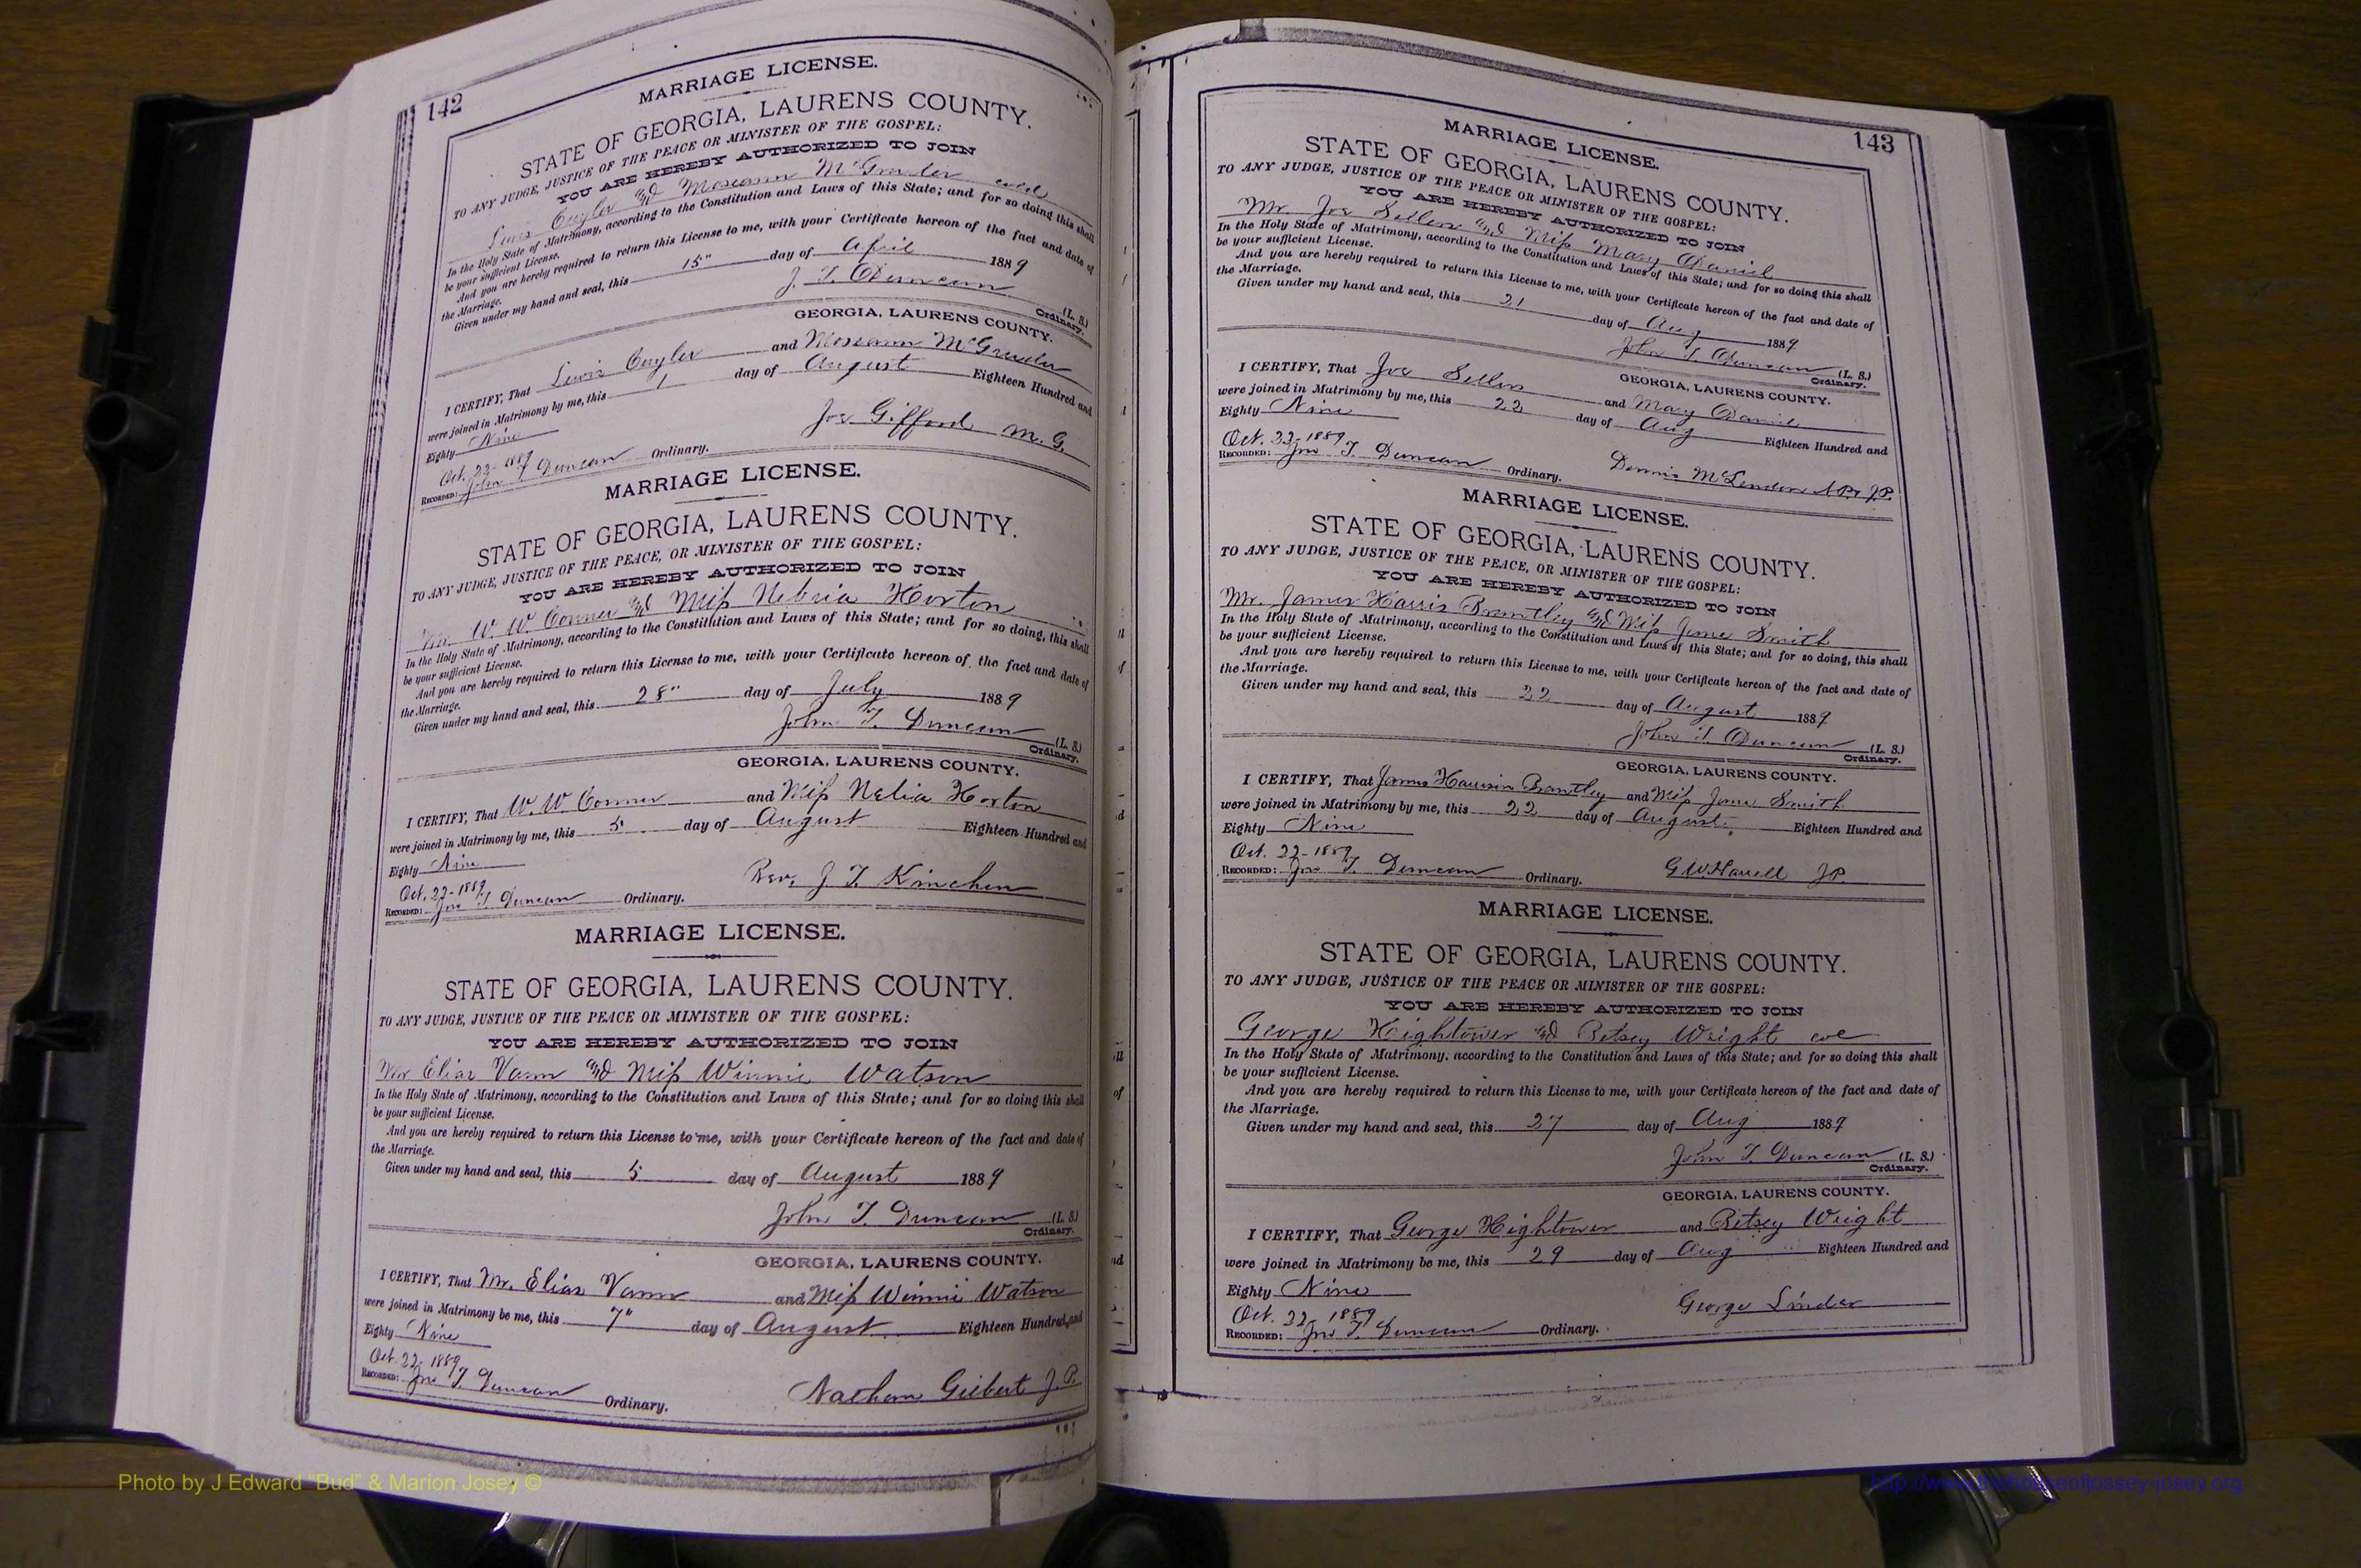 142
MARRIAGE LICENSE.
STATE OF GEORGIA, LAURENS COUNTY.
TO ANY JUDGE, JUSTICE OF THE PEACE OR MINISTER OF THE GOSPEL:
YOU ARE HEREBY AUTHORIZED TO JOIN
Lewis Cuyler and Moseann McGruder cold
In the Holy State of Matrimony, according to the Constitution and Laws of this State; and for so doing this shall
be your sufficient License.
And you are hereby required to return this License to me, with your Certificate hereon of the fact and date of
the Marriage.
Given under my hand and seal, this 15" day of April 1889
J. T. Duncan (L. S.)
Ordinary.
GEORGIA, LAURENS COUNTY.
I CERTIFY, That Lewis Cuyler and Moseann McGruder
were joined in Matrimony by me, this 1 day of August Eighteen Hundred and
Eighty Nine
Joe Gifford M. G.
Oct. 22-1889
RECORDED: John T Duncan Ordinary.
MARRIAGE LICENSE.
STATE OF GEORGIA, LAURENS COUNTY.
TO ANY JUDGE, JUSTICE OF THE PEACE, OR MINISTER OF THE GOSPEL:
YOU ARE HEREBY AUTHORIZED TO JOIN
Mr. W. W. Conner and Miss Horton
In the Holy State of Matrimony, according to the Constitution and Laws of this State; and for so doing, this shall
be your sufficient License.
And you are hereby required to return this License to me, with your Certificate hereon of the fact and date of
the Marriage.
Given under my hand and seal, this 28" day of July 1889
John T. Duncan (L. S.)
Ordinary.
GEORGIA, LAURENS COUNTY.
I CERTIFY, That W. W. Conner and Miss Nelia Horton
were joined in Matrimony by me, this 5 day of August Eighteen Hundred and
Eighty Nine
Rev. J T. Kinchen
Oct. 22-1889
RECORDED: Jno T. Duncan Ordinary.
MARRIAGE LICENSE.
STATE OF GEORGIA, LAURENS COUNTY.
TO ANY JUDGE, JUSTICE OF THE PEACE OR MINISTER OF THE GOSPEL:
YOU ARE HEREBY AUTHORIZED TO JOIN
Mr Elias Vann and Miss Winnie Watson
In the Holy State of Matrimony, according to the Constitution and Laws of this State; and for so doing this shall
be your sufficient License.
And you are hereby required to return this License to me, with your Certificate hereon of the fact and date of
the Marriage.
Given under my hand and seal, this 5 day of August 1889
John T. Duncan (L. S.)
Ordinary.
GEORGIA, LAURENS COUNTY.
I CERTIFY, That Mr. Elias Vann and Miss Winnie Watson
were joined in Matrimony be me, this 7" day of August Eighteen Hundred and
Eighty Nine
Oct. 22, 1889
RECORDED: Jno T. Duncan Ordinary.
Nathan Gilbert J. P.
143
MARRIAGE LICENSE.
STATE OF GEORGIA, LAURENS COUNTY.
TO ANY JUDGE, JUSTICE OF THE PEACE OR MINISTER OF THE GOSPEL:
YOU ARE HEREBY AUTHORIZED TO JOIN
Mr. Joe Sellers and Miss Mary Daniel
In the Holy State of Matrimony, according to the Constitution and Laws of this State; and for so doing this shall
be your sufficient License.
And you are hereby required to return this License to me, with your Certificate hereon of the fact and date of
the Marriage.
Given under my hand and seal, this 21 day of Aug 1889
John T. Duncan (L. S.)
Ordinary.
GEORGIA, LAURENS COUNTY.
I CERTIFY, That Joe Sellers and Mary Daniel
were joined in Matrimony by me, this 22 day of Aug Eighteen Hundred and
Eighty Nine
Oct. 22-1889
RECORDED: Jno T. Duncan Ordinary.
Dennis McLendon N.P. & J.P.
MARRIAGE LICENSE.
STATE OF GEORGIA, LAURENS COUNTY.
TO ANY JUDGE, JUSTICE OF THE PEACE, OR MINISTER OF THE GOSPEL:
YOU ARE HEREBY AUTHORIZED TO JOIN
Mr. James Harris Brantley and Miss Jane Smith
In the Holy State of Matrimony, according to the Constitution and Laws of this State; and for so doing, this shall
be your sufficient License.
And you are hereby required to return this License to me, with your Certificate hereon of the fact and date of
the Marriage.
Given under my hand and seal, this 22 day of August 1889
John T. Duncan (L. S.)
Ordinary.
GEORGIA, LAURENS COUNTY.
I CERTIFY, That James Harrison Brantley and Miss Jane Smith
were joined in Matrimony by me, this 22 day of August Eighteen Hundred and
Eighty Nine
Oct. 22-1889
RECORDED: Jno T. Duncan Ordinary.
G W Harrell JP.
MARRIAGE LICENSE.
STATE OF GEORGIA, LAURENS COUNTY.
TO ANY JUDGE, JUSTICE OF THE PEACE OR MINISTER OF THE GOSPEL:
YOU ARE HEREBY AUTHORIZED TO JOIN
George Hightower and Betsey Wright col
In the Holy State of Matrimony, according to the Constitution and Laws of this State; and for so doing this shall
be your sufficient License.
And you are hereby required to return this License to me, with your Certificate hereon of the fact and date of
the Marriage.
Given under my hand and seal, this 27 day of Aug 1889
John T. Duncan (L. S.)
Ordinary.
GEORGIA, LAURENS COUNTY.
I CERTIFY, That George Hightower and Betsey Wright
were joined in Matrimony be me, this 29 day of Aug Eighteen Hundred and
Eighty Nine
George Linder
Oct. 22, 1889
RECORDED: Jno T. Duncan Ordinary.
Photo by J Edward "Bud" & Marion Josey ©
http://www.thehouseofjossey-josey.org